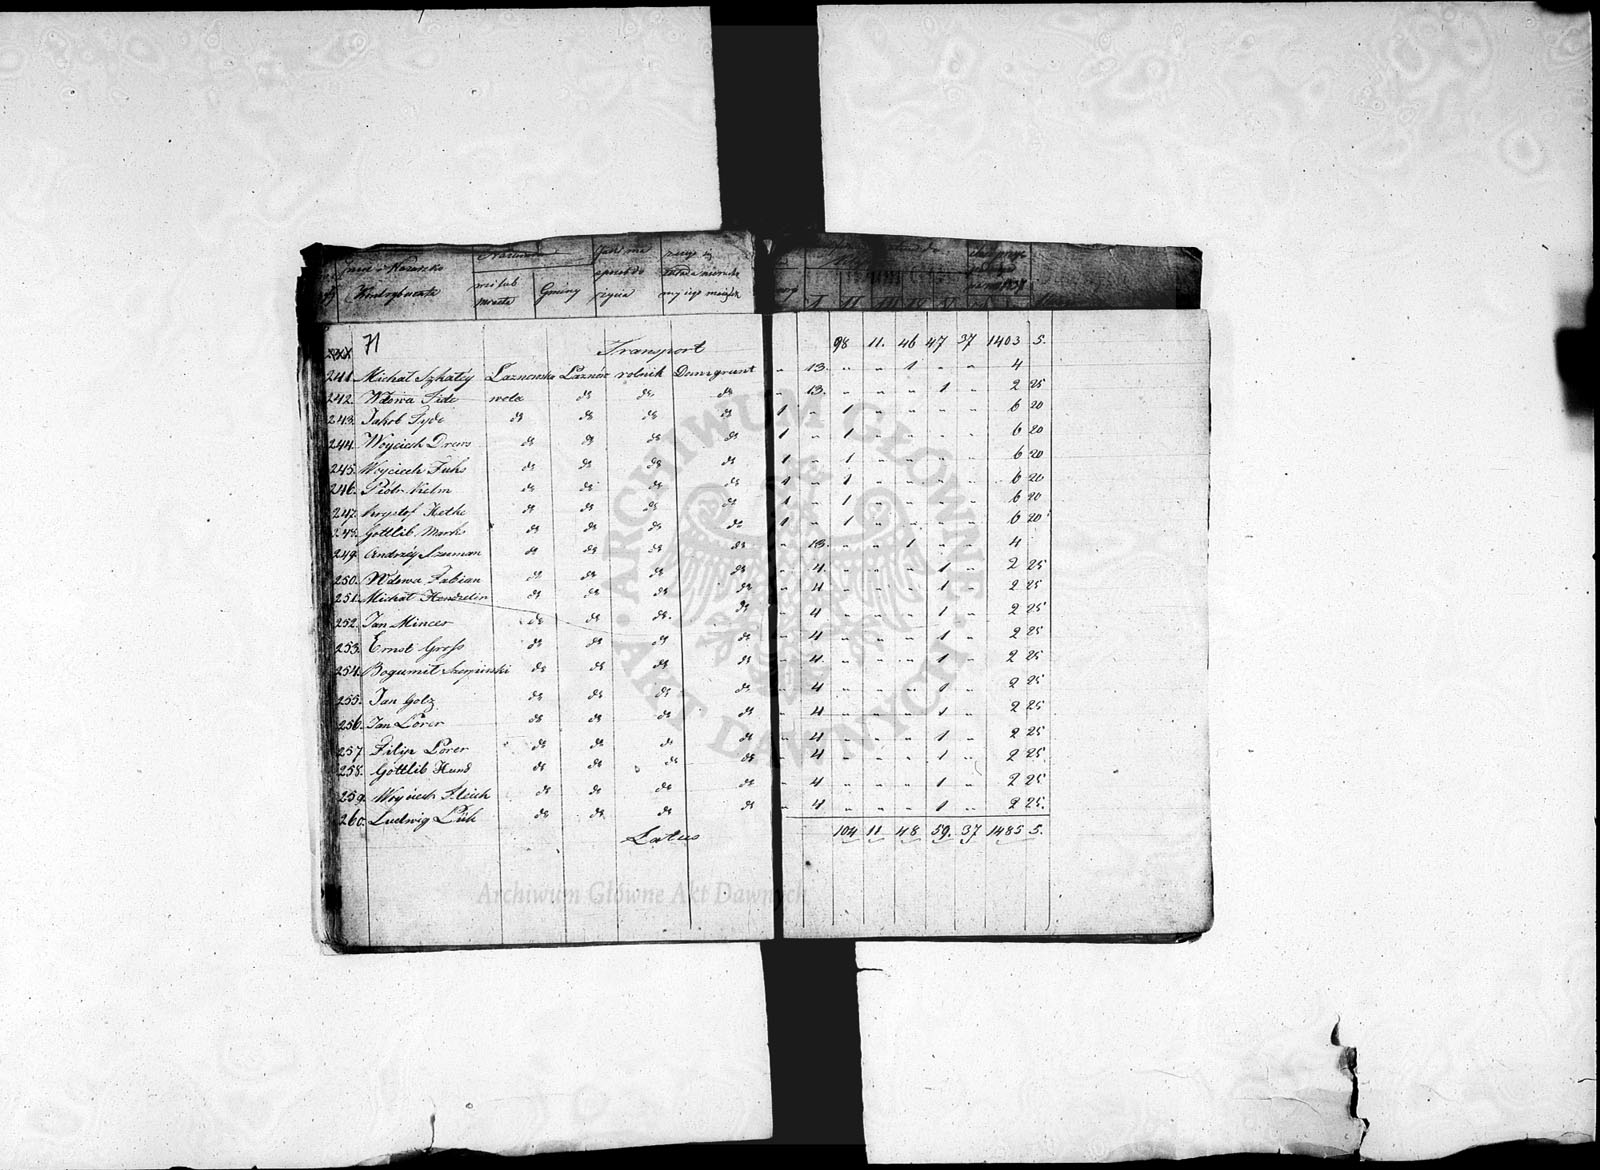 Imie i Nazwisko Kontrybuenta wsi lub miasta Gminy sposób do życia
I II III IV V VI
71 Transport 98 11. 46 47 37 1403 5.
241. Michał Szkatéy Łaznowska Łaznów rolnik Domi grunt " 13. " " 1 " " 4
242. Wdowa Tide wola do do do " 13. " " " 1 " 2 25
243. Jakob Tyde do do do do 1 " 1 " " " " 6 20
244. Woyciech Drews do do do do 1 " 1 " " " " 6 20
245. Woyciech Fuks do do do do 1 " 1 " " " " 6 20
246. Piótr Kelm do do do do 1 " 1 " " " " 6 20
247. Krysztof Hetke do do do do 1 " 1 " " " " 6 20
248. Gottlib Marks do do do do 1 " 1 " " " " 6 20
249. Andrzéy Szuman do do do do " 13. " " 1 " " 4
250. Wdowa Fabian do do do do " 4 " " " 1 " 2 25
251. Michał Hendzelin do do do do " 4 " " " 1 " 2 25
252. Jan Mincer do do do do " 4 " " " 1 " 2 25
253. Ernst Gross do do do do " 4 " " " 1 " 2 25
254. Bogumił do do do do " 4. " " " 1 " 2 25
255. Jan Golz do do do do " 4 " " " 1 " 2 25
256. Jan Lörer do do do do " 4 " " " 1 " 2 25
257. Filip Lörer do do do do " 4 " " " 1 " 2 25
258. Gottlib Hund do do do do " 4 " " " 1 " 2 25
259. Woyciech Fleich do do do do " 4 " " " 1 " 2 25
260. Ludwig Lük do do do do " 4 " " " 1 " 2 25.
Latus 104 11 48 59. 37 1485 5.
ARCHIWUM GŁÓWNE AKT DAWNYCH
Archiwum Główne Akt Dawnych